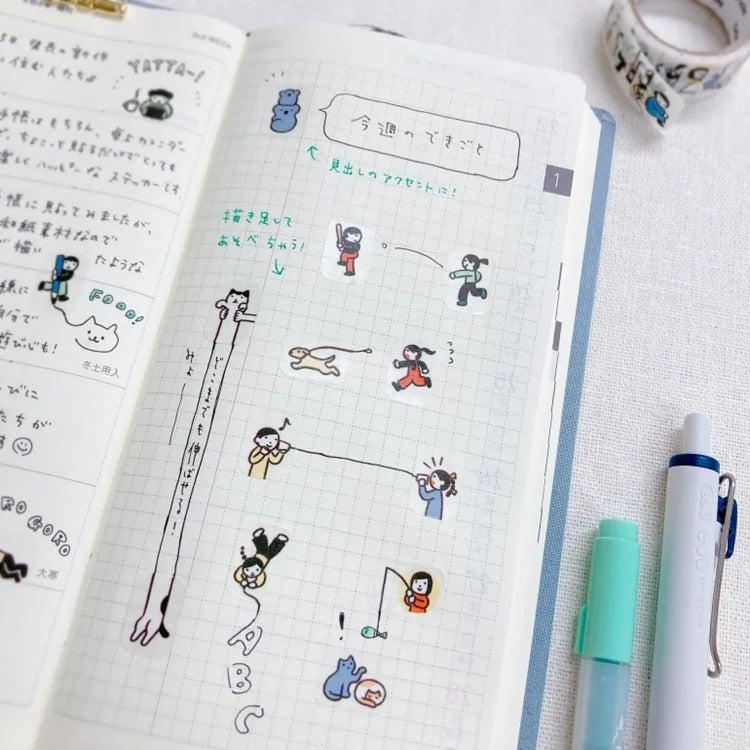 3rd WEEK
5日 発売の新作
に住む人たち
YATTA-!
手帳はもちろん、卓上カレンダー
ちょこっと貼るだけでとっても
楽しくハッピーな ステッカーです
帳に貼ってみましたが、
和紙素材なので
描いたような
FOOO!
様に
自分で
遊び心も!
冬土用入
びに
たちが
す
ROGORO
大寒
今週のできごと
見出しのアクセントに!
1
描き足して
あそべちゃう!
みょーーん
どこまでも伸ばせる!
♪
!
A
B
C